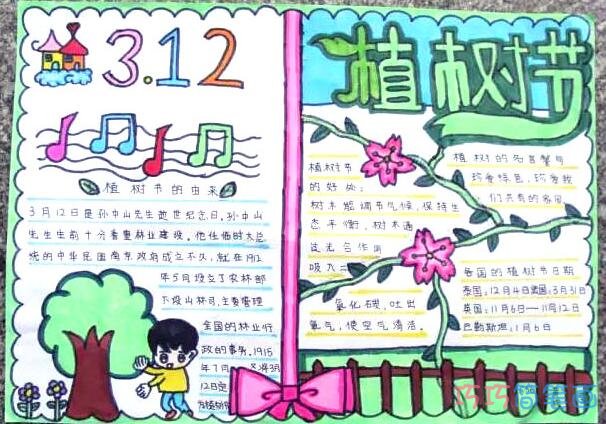 3.12
植树节
植树节的由来
3月12日是孙中山先生逝世纪念日。孙中山
先生生前十分看重林业建设。他任临时大总
统的中华民国南京政府成立不久,就在1912
年5月设立了农林部
下设山林司,主要管理
全国的林业行
政的事务。1915
年7月
12日定
植树节
的好处:
树木能调节气候,保持生
态平衡,树木通
过光合作用
吸入二
氧化碳,吐出
氧气,使空气清洁。
植树的名言警句
珍爱绿色,珍爱我
们共有的家园
各国的植树节日期
泰国:12月4日 美国:3月31日
英国:11月6日—11月12日
巴勒斯坦:1月6日
巧巧简笔画